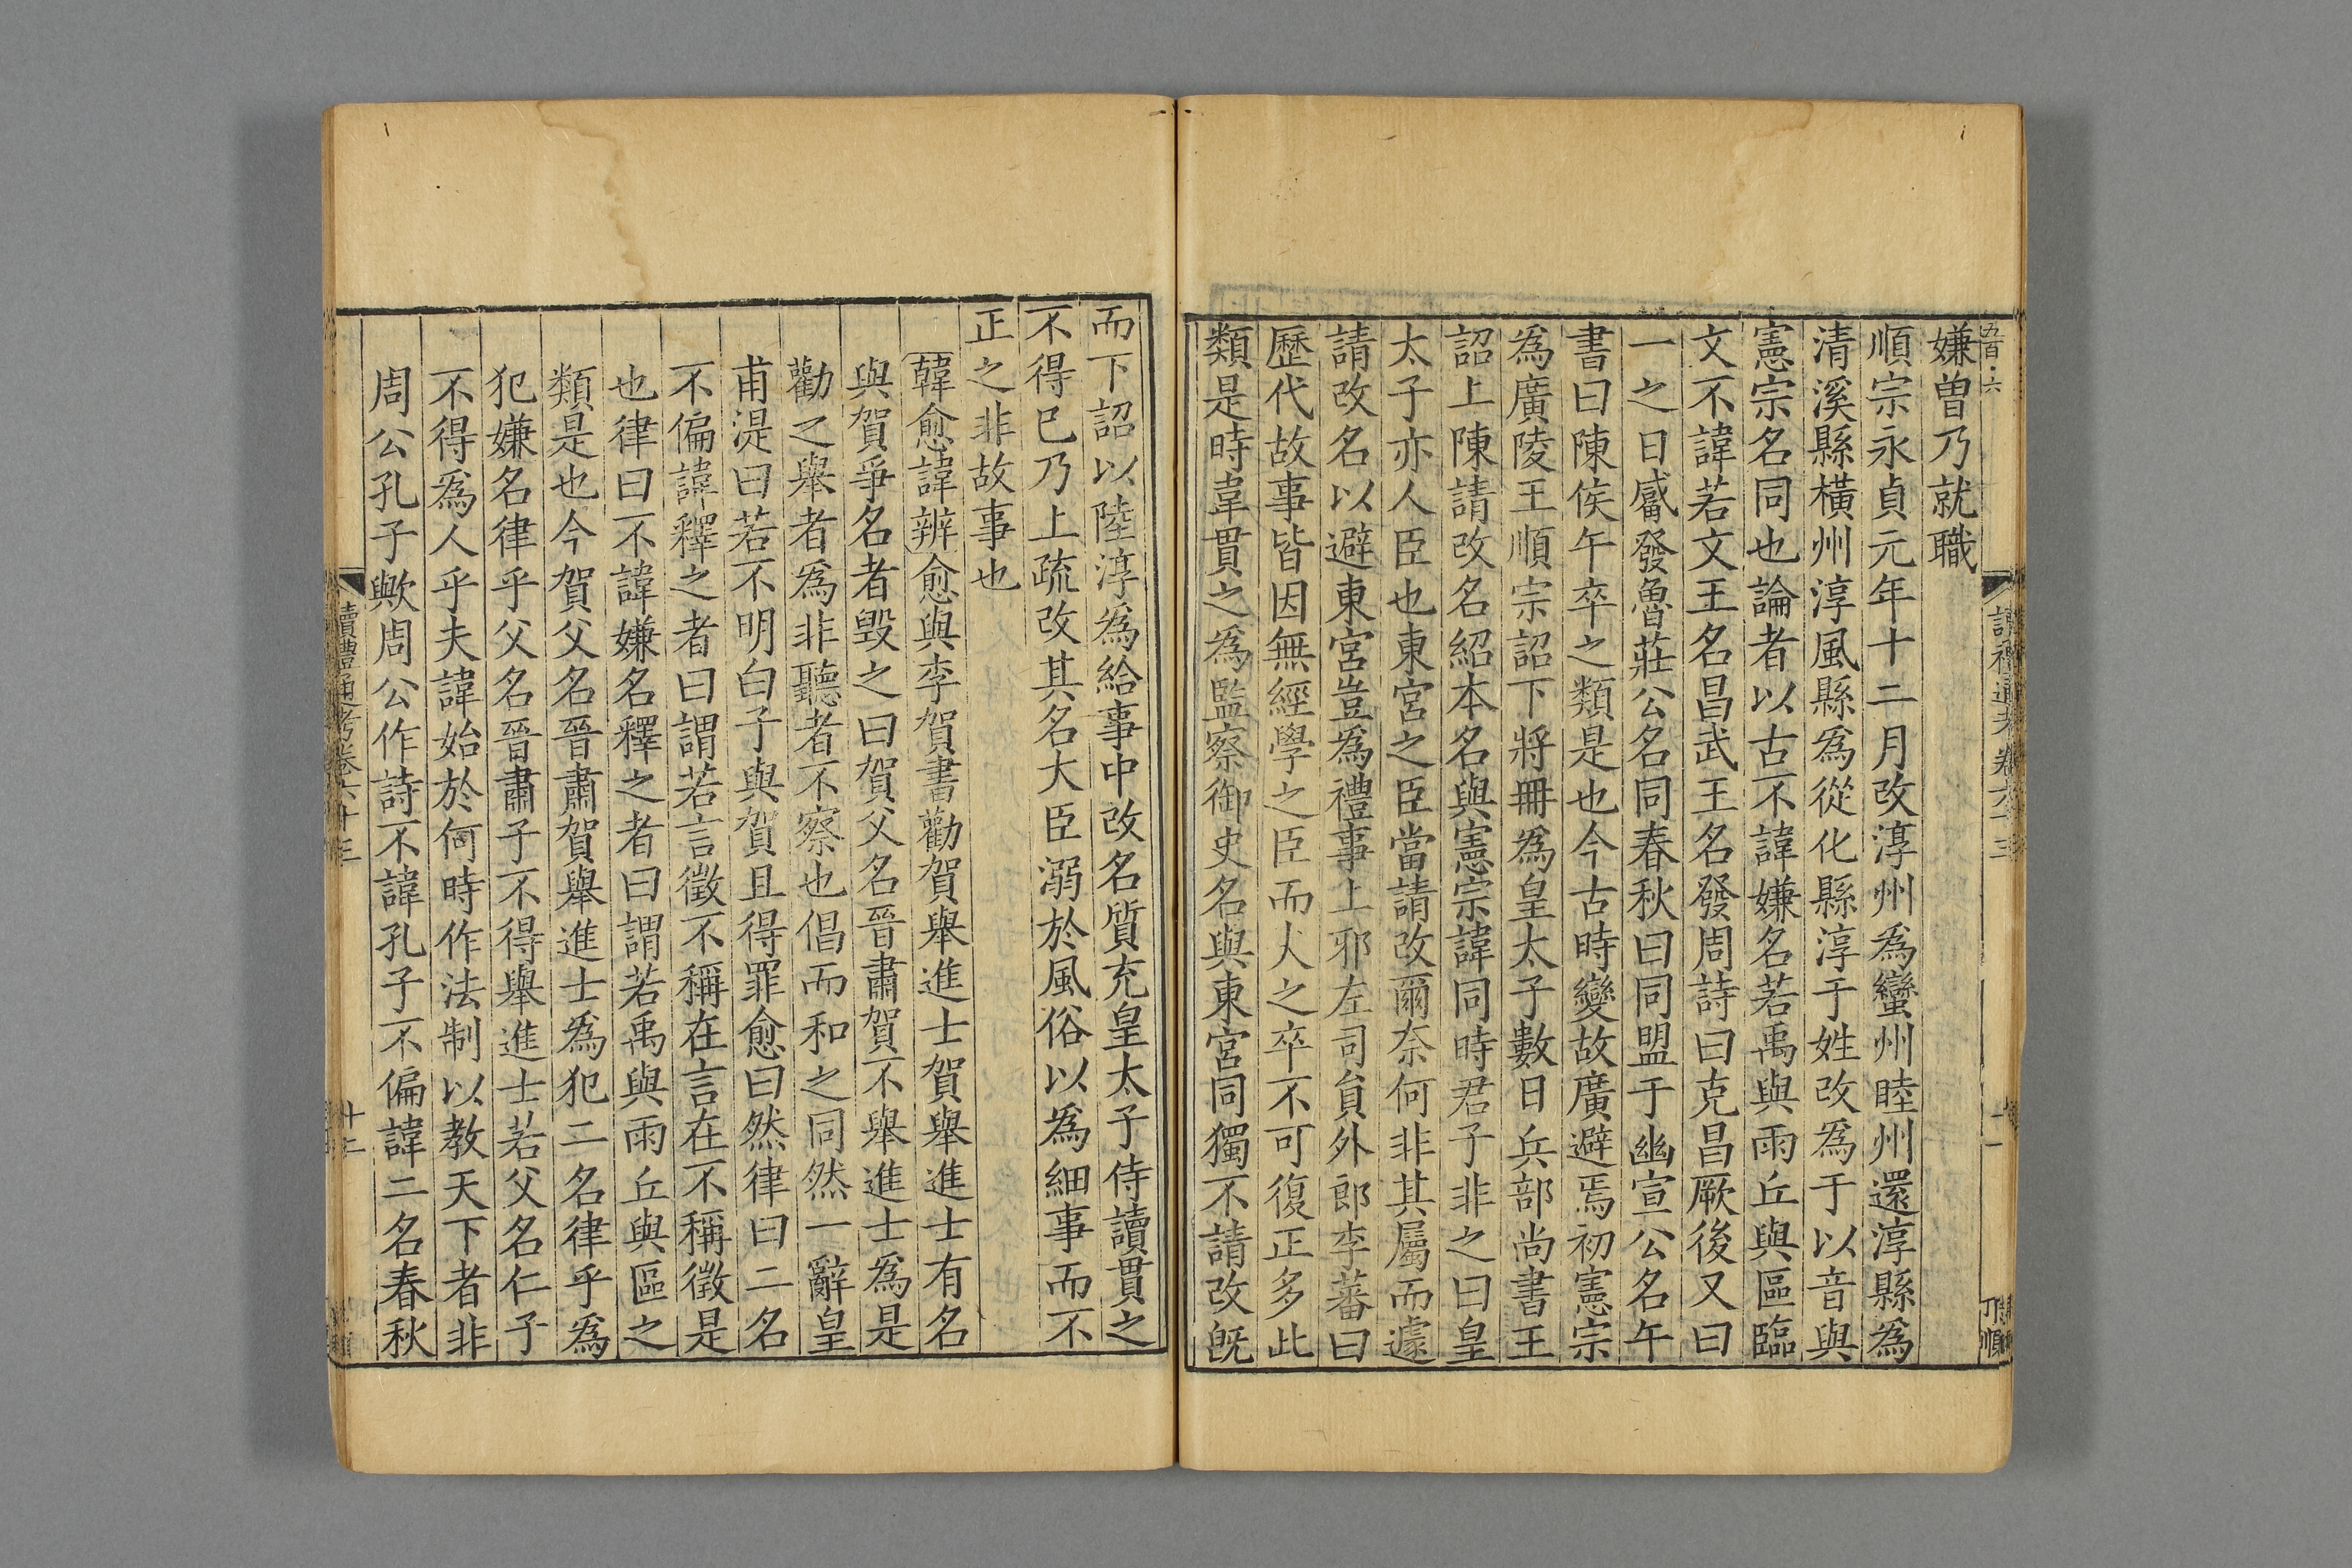 五百·六
嫌曾乃就職
順宗永貞元年十二月改淳州為蠻州睦州還淳縣為
清溪縣橫州淳風縣為從化縣淳于姓改為于以音與
憲宗名同也論者以古不諱嫌名若禹與雨丘與區臨
文不諱若文王名昌武王名發周詩曰克昌厥後又曰
一之日觱發魯莊公名同春秋曰同盟于幽宣公名午
書曰陳侯午卒之類是也今古時變故廣避焉初憲宗
為廣陵王順宗詔下將冊為皇太子數日兵部尚書王
詔上陳請改名紹本名與憲宗諱同時君子非之曰皇
太子亦人臣也東宮之臣當請改爾奈何非其屬而遽
請改名以避東宮豈為禮事上邪左司員外郎李蕃曰
歷代故事皆因無經學之臣而失之卒不可復正多此
類是時韋貫之為監察御史名與東宮同獨不請改既
而下詔以陸淳為給事中改名質充皇太子侍讀貫之
不得已乃上疏改其名大臣溺於風俗以為細事而不
正之非故事也
韓愈諱辨愈與李賀書勸賀舉進士賀舉進士有名
與賀爭名者毀之曰賀父名晉肅賀不舉進士為是
勸之舉者為非聽者不察也倡而和之同然一辭皇
甫湜曰若不明白子與賀且得罪愈曰然律曰二名
不偏諱釋之者曰謂若言徵不稱在言在不稱徵是
也律曰不諱嫌名釋之者曰謂若禹與雨丘與區之
類是也今賀父名晉肅賀舉進士為犯二名律乎為
犯嫌名律乎父名晉肅子不得舉進士若父名仁子
不得為人乎夫諱始於何時作法制以教天下者非
周公孔子歟周公作詩不諱孔子不偏諱二名春秋
讀禮通考卷六十三